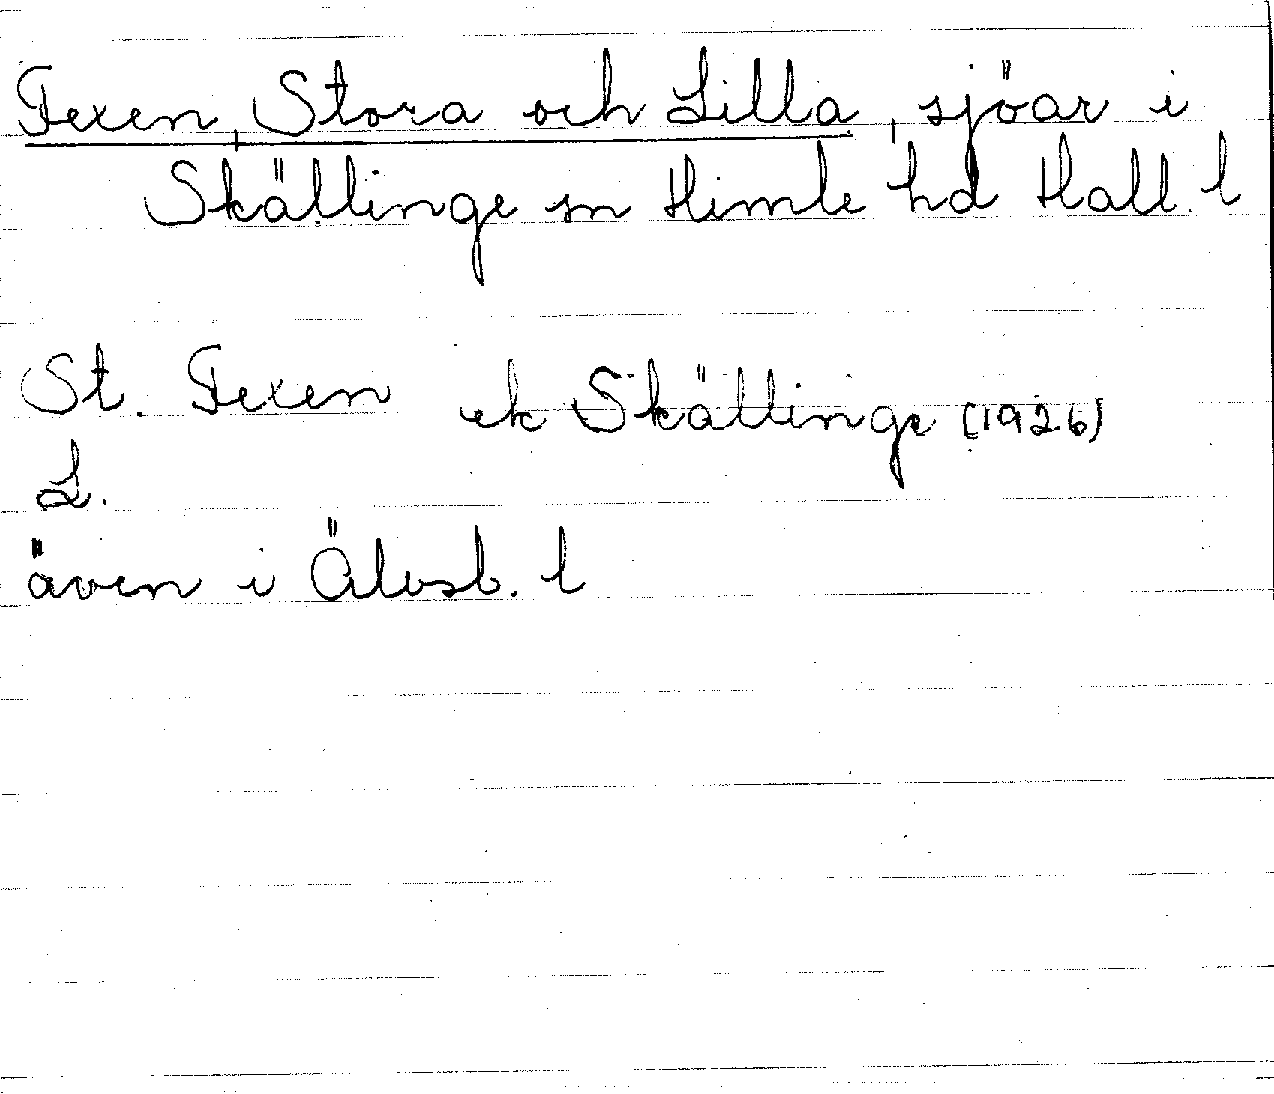 Fexen, Stora och Lilla, sjöar i
Skällinge sn Himle hd Hall. l
St. Fexen ek Skällinge (1926)
L.
även i Älvsb. l